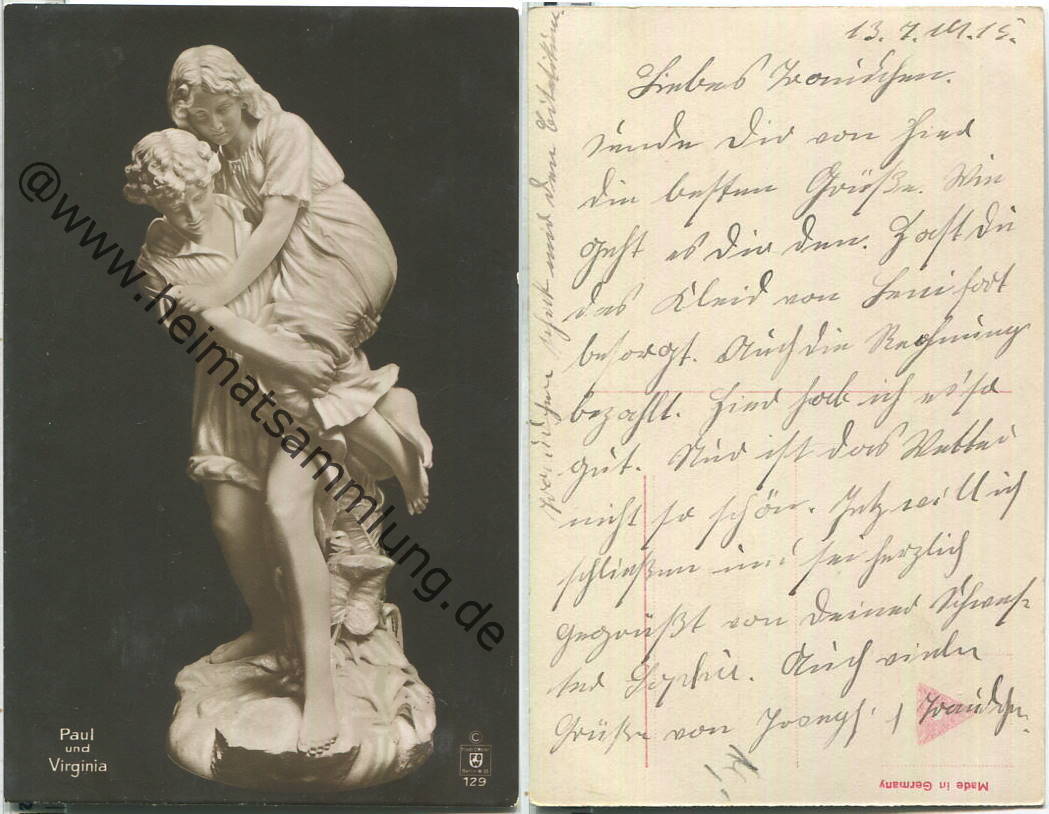 Paul
und
Virginia
©
129
@www.heimatsammlung.de
13. 7. 1915.
Liebes Traudchen.
Sende Dir von hier
die besten Grüße. Wie
geht es Dir den. Hast Du
das Kleid von Leni fort
besorgt. Auch die Rechnung
bezahlt. Hier hab ich es so
gut. Nur ist das Wetter
nicht so schön. Jetz will ich
schließen und sei herzlich
gegrüßt von Deiner Schwes-
ter Sophie. Auch viele
Grüße von
Made in Germany